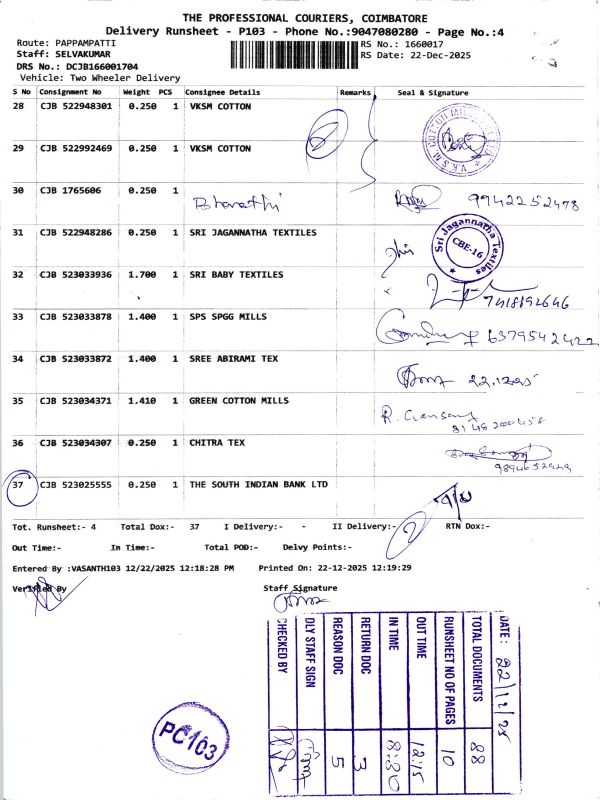 THE PROFESSIONAL COURIERS, COIMBATORE
Delivery Runsheet - P103 - Phone No.:9047080280 - Page No.:4
Route: PAPPAMPATTI
RS No.: 1660017
Staff: SELVAKUMAR
RS Date: 22-Dec-2025
DRS No.: DCJB166001704
Vehicle: Two Wheeler Delivery
S No Consignment No Weight PCS Consignee Details Remarks Seal & Signature
28 CJB 522948301 0.250 1 VKSM COTTON
29 CJB 522992469 0.250 1 VKSM COTTON
30 CJB 1765606 0.250 1 Bharathi 9942252478
31 CJB 522948286 0.250 1 SRI JAGANNATHA TEXTILES
Sri Jagannatha Textiles
CBE-16
32 CJB 523033936 1.700 1 SRI BABY TEXTILES
7418192646
33 CJB 523033878 1.400 1 SPS SPGG MILLS 6379542422
34 CJB 523033872 1.400 1 SREE ABIRAMI TEX 22.12.25
35 CJB 523034371 1.410 1 GREEN COTTON MILLS
36 CJB 523034307 0.250 1 CHITRA TEX
37 CJB 523025555 0.250 1 THE SOUTH INDIAN BANK LTD
Tot. Runsheet:- 4 Total Dox:- 37 I Delivery:- - II Delivery:- RTN Dox:-
Out Time:- In Time:- Total POD:- Delvy Points:-
Entered By :VASANTH103 12/22/2025 12:18:28 PM Printed On: 22-12-2025 12:19:29
Verified By Staff Signature
DATE: 22/12/25
TOTAL DOCUMENTS 88
RUNSHEET NO OF PAGES 10
OUT TIME 12:15
IN TIME 8:30
RETURN DOC 3
REASON DOC 5
DLY STAFF SIGN
CHECKED BY
PC103